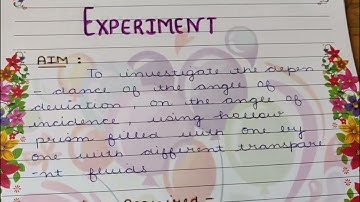 EXPERIMENT
AIM :
To investigate the depen
- dance of the angle of
deviation, on the angle of
incidence, using hollow
prism filled with one by
one with different transpare
-nt fluids
Required -